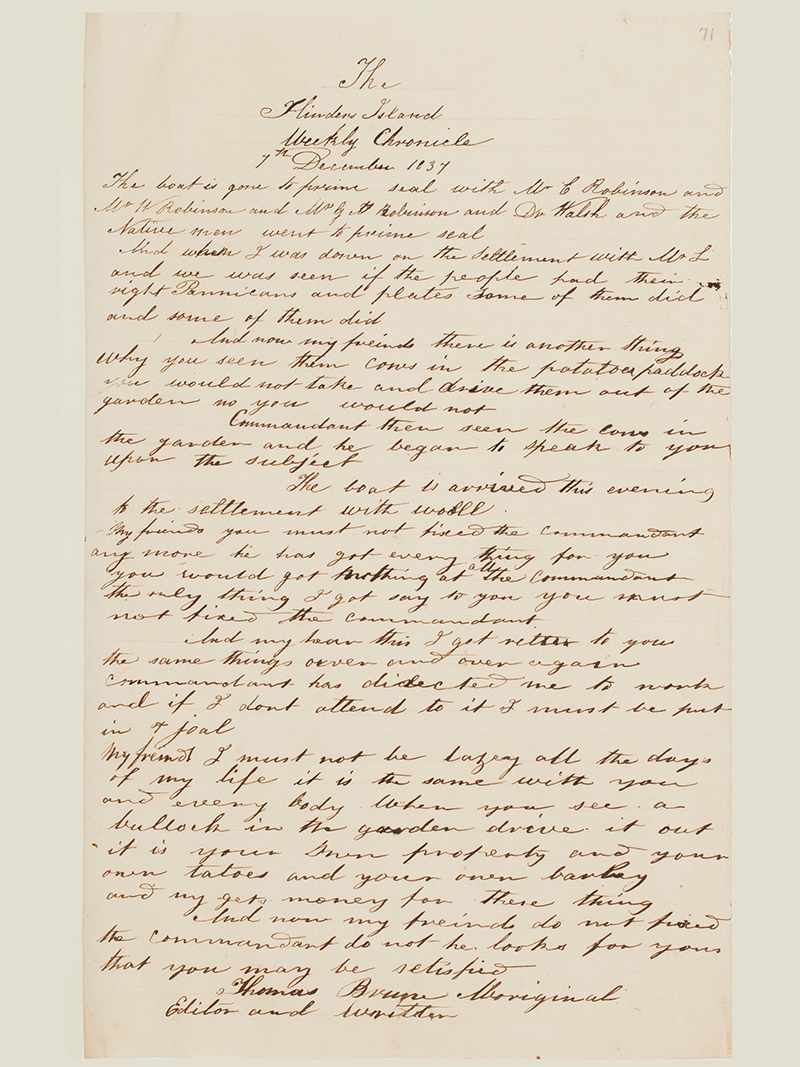 71
The
Flinders Island
Weekly Chronicle
7th December 1837
The boat is gone to prime seal with Mr C Robinson and
Mr W Robinson and Mr G A Robinson and Dr Walsh and the
Native men went to prime seal
And when I was down on the Settlement with Mr L
and we was seen if the people had their
right Pannicans and plates some of them did
and some of them did
And now my freinds there is another thing
why you seen them cows in the potatoes paddock
you would not take and drive them out of the
garden no you would not
Commandant then seen the cows in
the garden and he began to speak to you
upon the subject
The boat is arrived this evening
to the settlement with wolll.
My friends you must not fixed the commandant
any more he has got every thing for you
you would got nothing at all the commandant
the only thing I got say to you you must
not fixed the commandant
And my hear this I got ritten to you
the same things over and over again
commandant has directed me to work
and if I dont attend to it I must be put
in to joal
My freinds I must not be lazey all the days
of my life it is the same with you
and every body when you see a
bullock in the garden drive it out
it is your own property and your
own tatoes and your own barley
and my gets money for these thing
And now my freinds do not fixed
the commandant do not he looks for yous
that you may be setisfied
Thomas Brune Aboriginal
Editor and writter